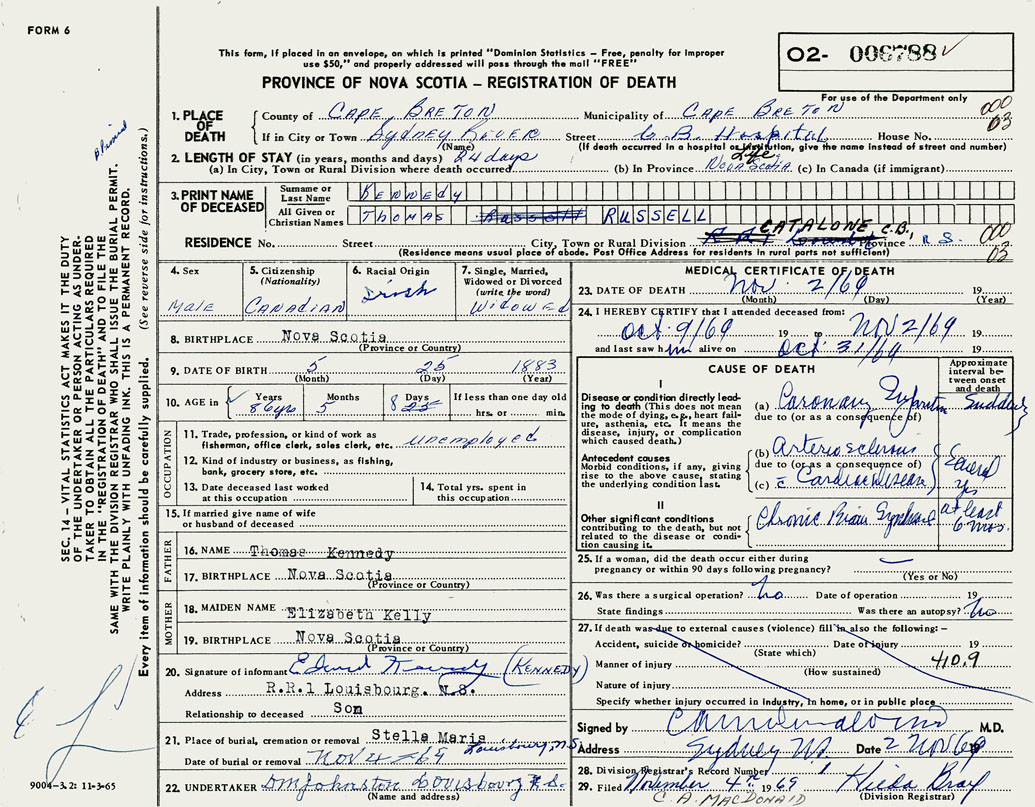 FORM 6
This form, if placed in an envelope, on which is printed "Dominion Statistics – Free, penalty for improper
use $50," and properly addressed will pass through the mail "FREE"
O2- 006788
PROVINCE OF NOVA SCOTIA – REGISTRATION OF DEATH
For use of the Department only
1. PLACE OF DEATH
County of CAPE BRETON Municipality of CAPE BRETON 000
If in City or Town Sydney River Street C. B. Hospital House No. 03
(Name) (If death occurred in a hospital or institution, give the name instead of street and number)
2. LENGTH OF STAY (in years, months and days) 24 days Life
(a) In City, Town or Rural Division where death occurred (b) In Province Nova Scotia (c) In Canada (if immigrant)
3. PRINT NAME OF DECEASED
Surname or Last Name KENNEDY
All Given or Christian Names THOMAS RUSSELL
CATALONE C.B.,
RESIDENCE No. Street City, Town or Rural Division Province N.S. 000
(Residence means usual place of abode. Post Office Address for residents in rural parts not sufficient) 03
4. Sex Male
5. Citizenship (Nationality) CANADIAN
6. Racial Origin Irish
7. Single, Married, Widowed or Divorced (write the word) Widowed
8. BIRTHPLACE Nova Scotia
(Province or Country)
9. DATE OF BIRTH 5 25 1883
(Month) (Day) (Year)
10. AGE in Years Months Days If less than one day old
86 yrs 5 8 hrs. or min.
OCCUPATION
11. Trade, profession, or kind of work as
fisherman, office clerk, sales clerk, etc. unemployed
12. Kind of industry or business, as fishing,
bank, grocery store, etc.
13. Date deceased last worked
at this occupation
14. Total yrs. spent in
this occupation
15. If married give name of wife
or husband of deceased
FATHER
16. NAME Thomas Kennedy
17. BIRTHPLACE Nova Scotia
(Province or Country)
MOTHER
18. MAIDEN NAME Elizabeth Kelly
19. BIRTHPLACE Nova Scotia
(Province or Country)
20. Signature of informant Edward Kennedy (KENNEDY)
Address R.R.1 Louisbourg. N.S.
Relationship to deceased Son
21. Place of burial, cremation or removal Stella Maris Louisbourg, N.S.
Date of burial or removal NOV 4 - 69
22. UNDERTAKER DM Johnston Louisbourg N.S.
(Name and address)
MEDICAL CERTIFICATE OF DEATH
23. DATE OF DEATH Nov. 2/69 19
(Month) (Day) (Year)
24. I HEREBY CERTIFY that I attended deceased from:
Oct. 9/69 19 to Nov 2/69 19
and last saw him alive on Oct. 31/69 19
CAUSE OF DEATH
Approximate interval between onset and death
I
Disease or condition directly leading to death (This does not
mean the mode of dying, e.g., heart failure,
asthenia, etc. It means the
disease, injury, or complication
which caused death.)
(a) Coronary Sudden
due to (or as a consequence of)
Antecedent causes
Morbid conditions, if any, giving
rise to the above cause, stating
the underlying condition last.
(b) Arteriosclerosis
due to (or as a consequence of)
(c) c̄ Cardiac Disease Several yrs
II
Other significant conditions
contributing to the death, but not
related to the disease or condition
causing it.
Chronic Brain Syndrome at least 6 mos.
25. If a woman, did the death occur either during
pregnancy or within 90 days following pregnancy?
(Yes or No)
26. Was there a surgical operation? No Date of operation 19
State findings Was there an autopsy? No
27. If death was due to external causes (violence) fill in also the following: –
Accident, suicide or homicide? Date of injury 19
(State which)
Manner of injury 410.9
(How sustained)
Nature of injury
Specify whether injury occurred in industry, in home, or in public place
Signed by M.D.
Address Sydney NS Date 2 Nov 69
28. Division Registrar's Record Number 1
29. Filed November 4th 1969 Hilda Bray
C. A. MACDONALD (Division Registrar)
SEC. 14 – VITAL STATISTICS ACT MAKES IT THE DUTY
OF THE UNDERTAKER OR PERSON ACTING AS UNDERTAKER
TO OBTAIN ALL THE PARTICULARS REQUIRED
IN THE "REGISTRATION OF DEATH" AND TO FILE THE
SAME WITH THE DIVISION REGISTRAR WHO SHALL ISSUE THE BURIAL PERMIT.
WRITE PLAINLY WITH UNFADING INK. THIS IS A PERMANENT RECORD.
Every item of information should be carefully supplied. (See reverse side for instructions.)
9004–3.2: 11-3-65